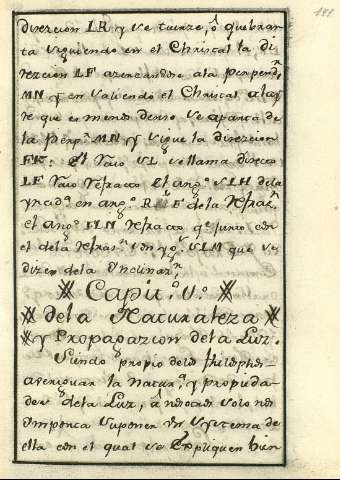 direccion LR y se tuerze, ô quebran-
ta siguiendo en el Christal la di-
reczion LF azercandose ala perpend.r
MN y en saliendo el Christal al ay
re que es menos denso se aparta de
la perp.r MN y sigue la direczion
FK. El raio SL se llama direcxo
LF raio refracto el ang.o SLH dela
yncid.n en ang.o R F dela refrac.n
el ang.o FLN refracto q.e junto con
el dela refrac.n son yg.s SLM que se
dize dela Inclinaz.n
Capit.o V.o
dela Naturaleza
y Propagazion dela Luz.
Siendo propio delos Philosophos
averiguar la natur.a y propieda-
des dela Luz, â nosotros solo nos
importa suponer un systema de
ella con el qual se expliquen bien